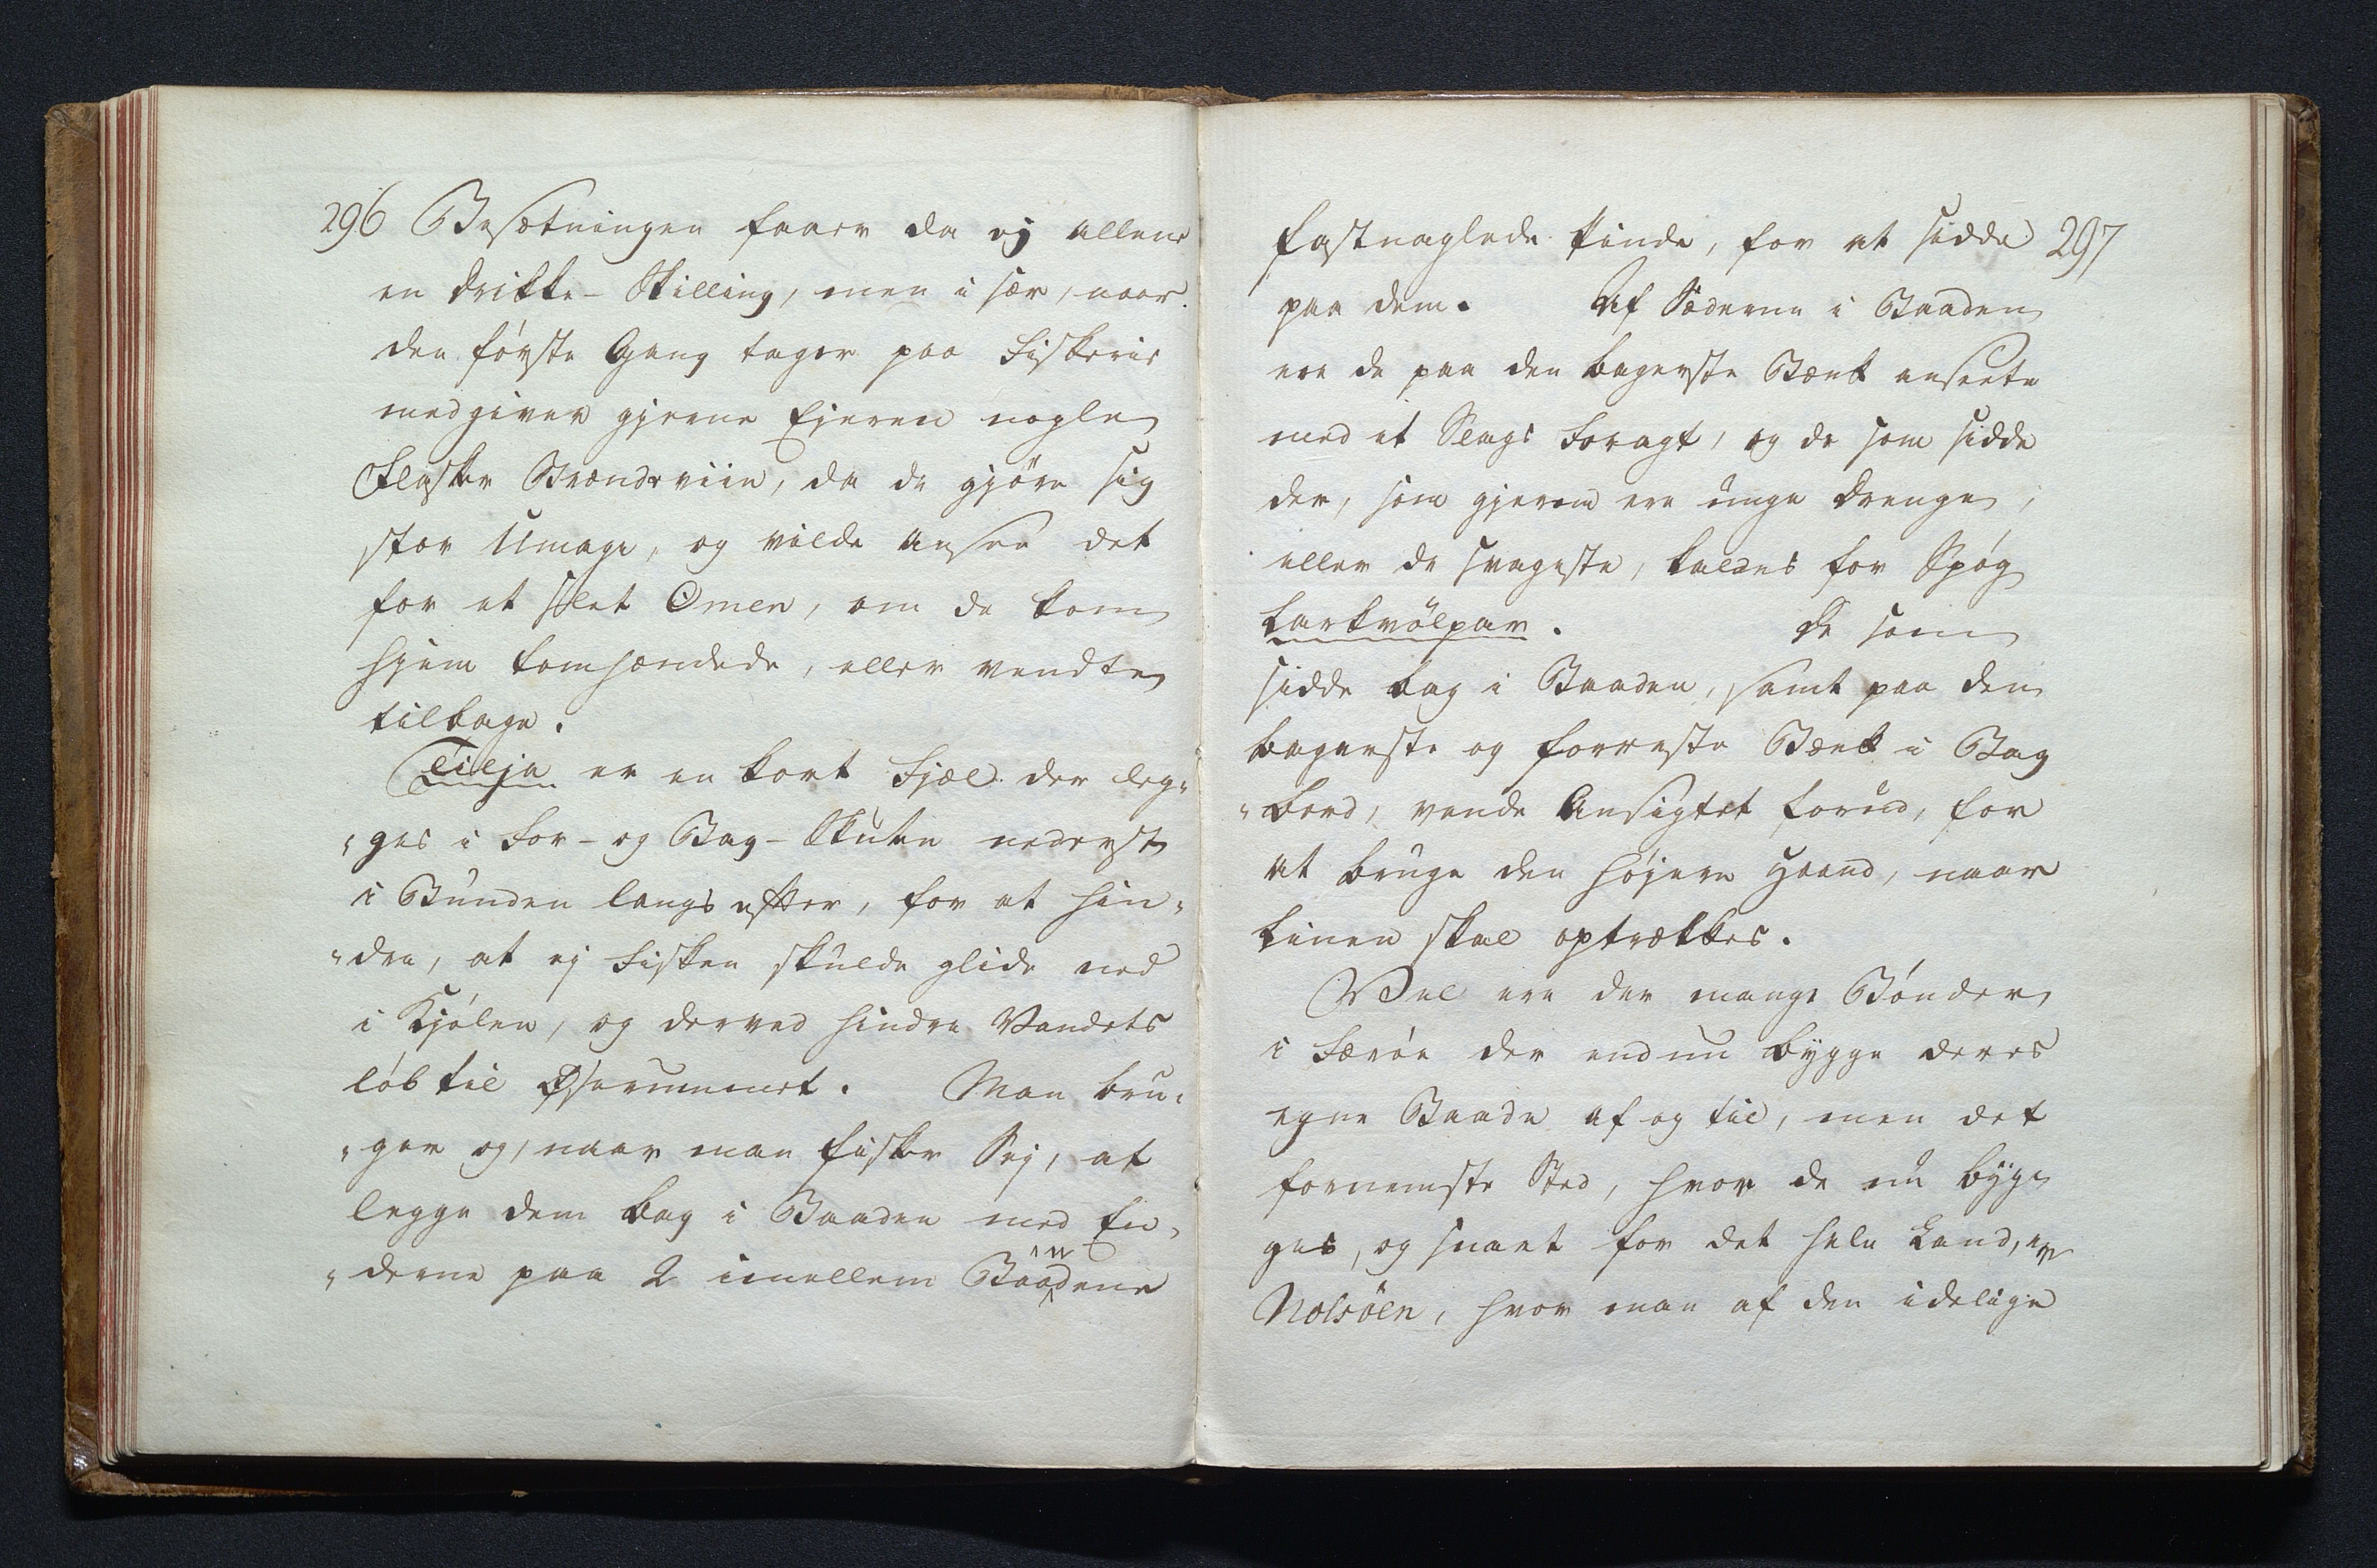 296 Besætningen faaer da ej allene
en Drikke-Skilling, men i sær, naar
den første Gang tager paa Fiskerie
medgiver gjerne Ejeren nogle
Flasker Brændeviin, da de gjøre sig
stor Umage, og vilde ansee det
for et slet Omen, om de kom
hjem tomhændede, eller vendte
tilbage.
Tilja er en kort Fjæl der leg„
„ges i For- og Bag-Skuten nederst
i Bunden langs efter, for at hin„
„dre, at ej Fisken skulde glide ned
i Kjølen, og derved hindre Vandets
løb til Øserummet. Man bru„
„ger og, naar man fisker Sej, at
legge dem bag i Baaden med En„
„derne paa 2 imellem Baadene
fastnaglede Pinde, for at sidde 297
paa dem. Af Sæderne i Baaden
ere de paa den bagerste Bænk anseete
med et Slags Foragt, og de som sidde
der, som gjerne ere unge Drenge,
eller de svageste, kaldes for Spøg
Barkvölpar. De som
sidde bag i Baaden, samt paa den
bagerste og forreste Bænk i Bag
„bord, vende Ansigtet forud, for
at bruge den højere Haand, naar
Linen skal optrækkes.
Vel ere der mange Bønder
i Færøe der endnu bygge deres
egne Baade af og til, men det
fornemste Sted, hvor de nu byg„
ges, og snart for det hele Land, er
Nolsöen, hvor man af den idelige